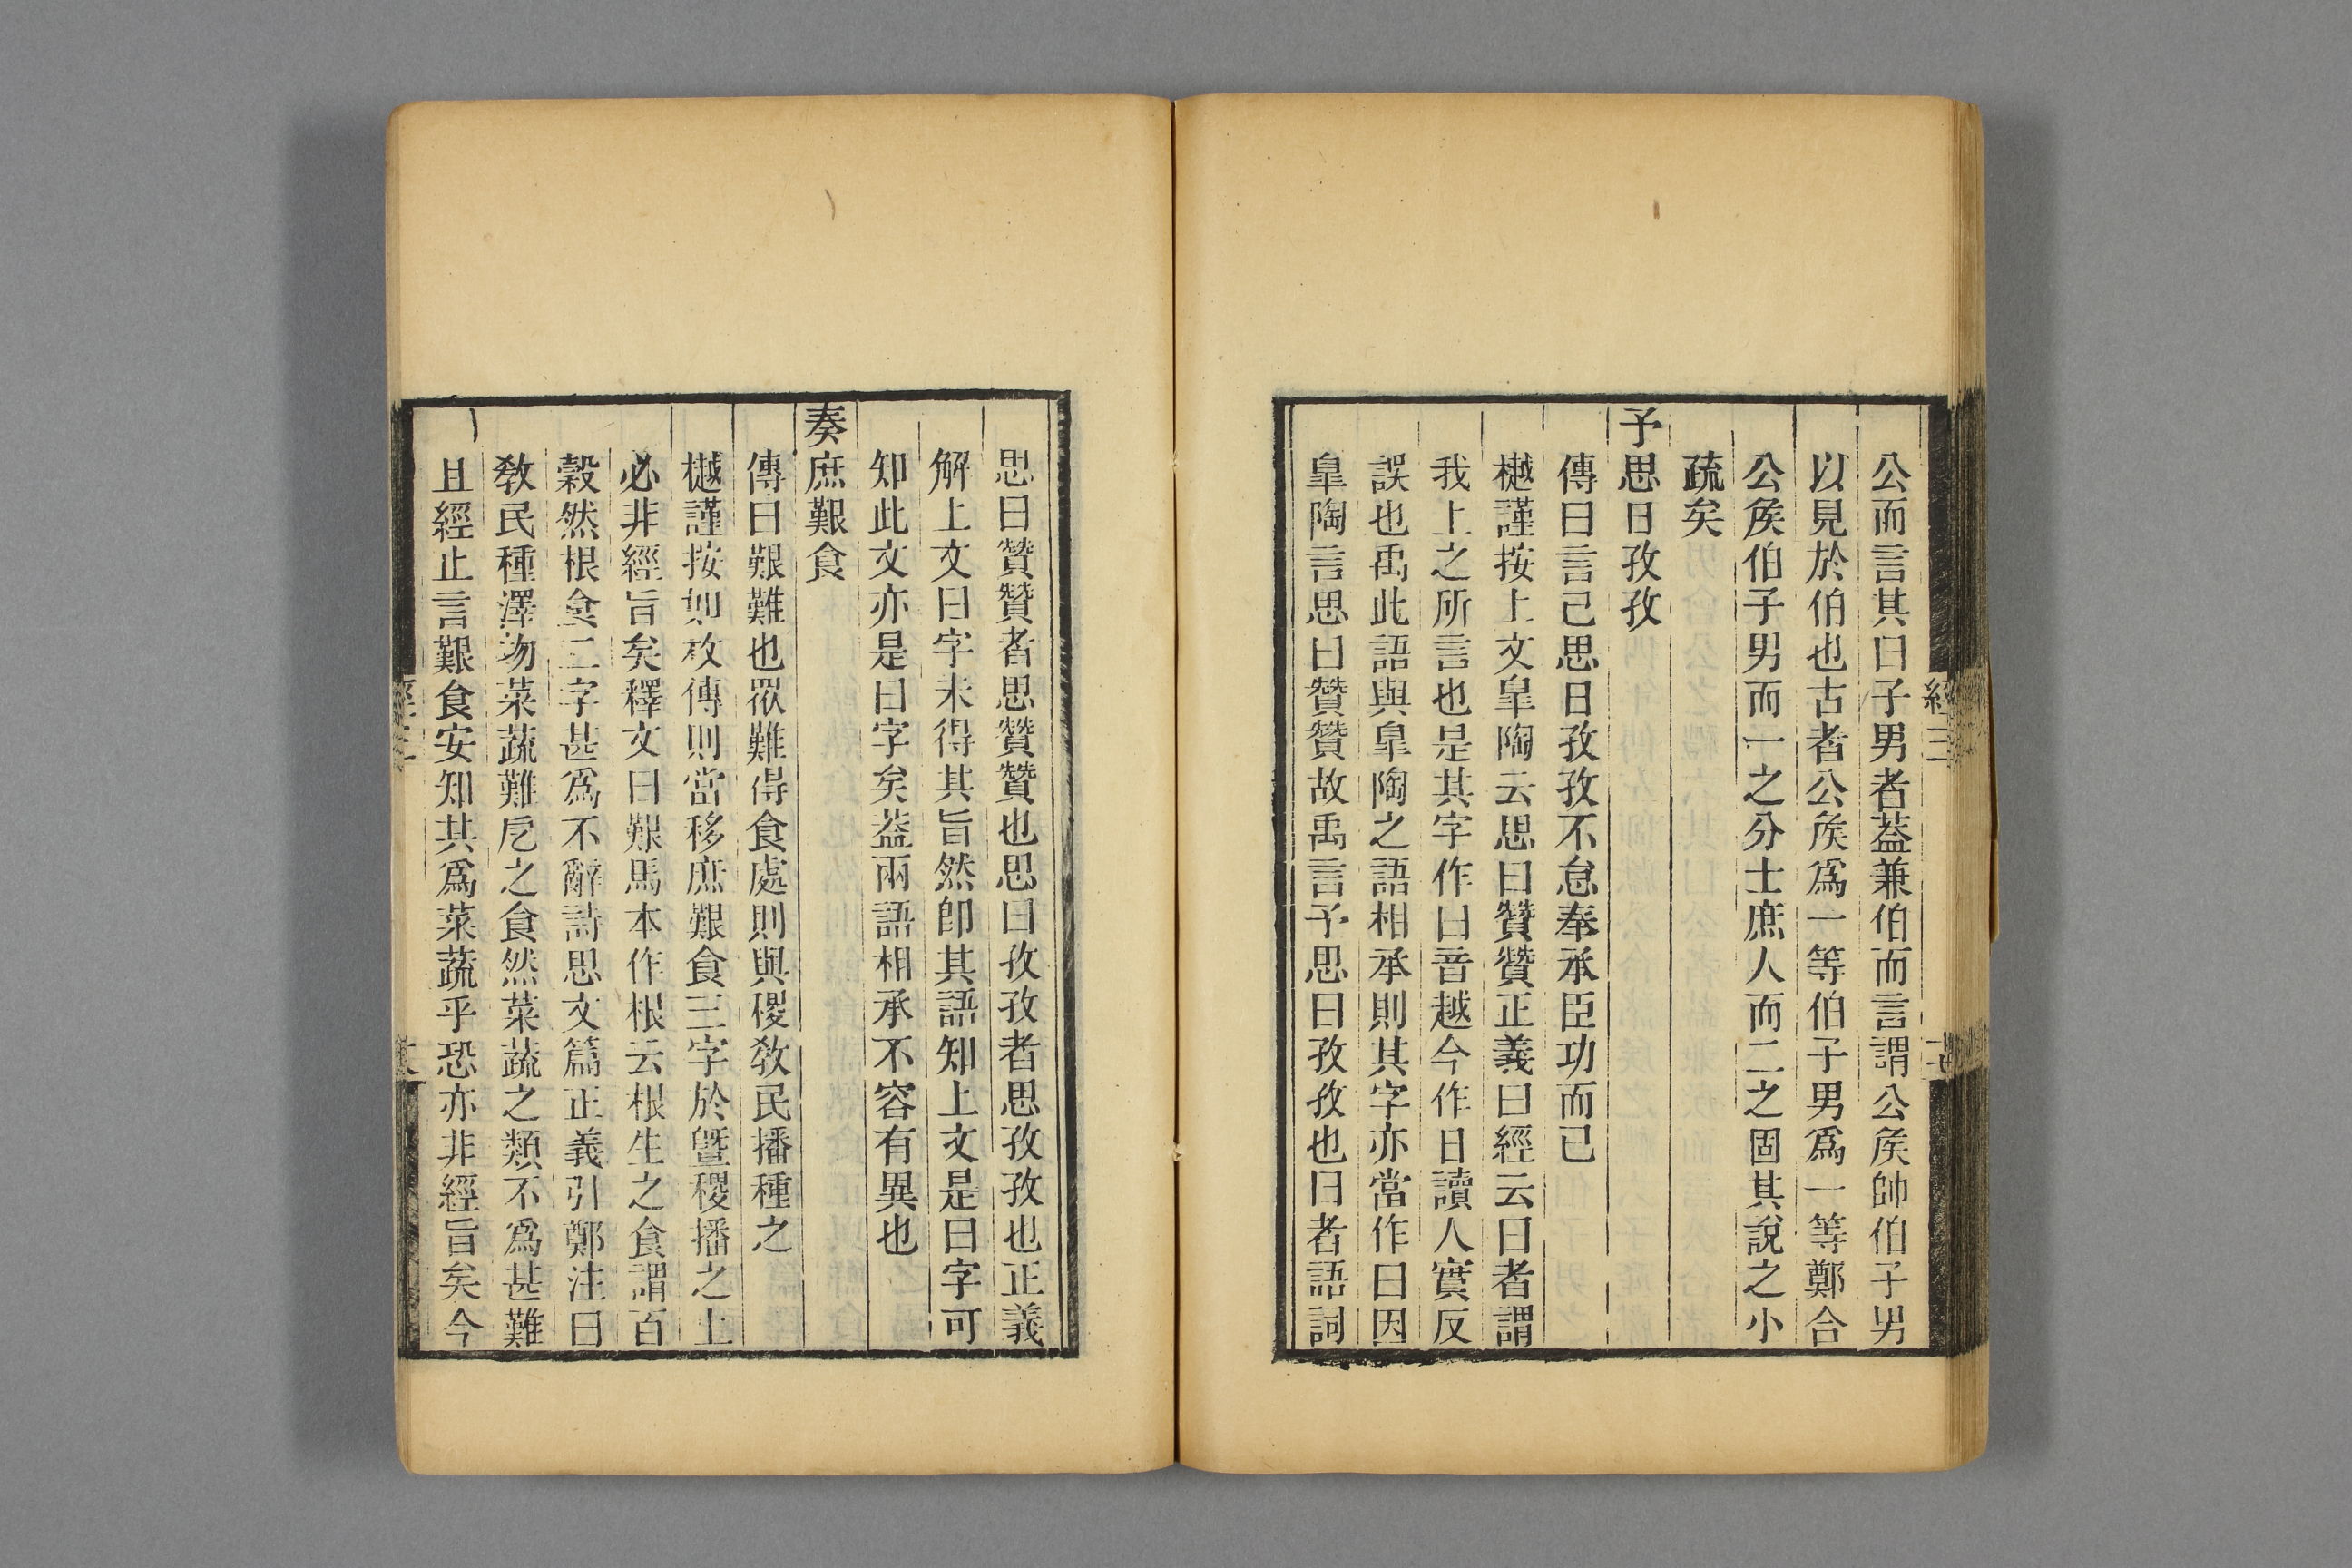 公而言其曰子男者葢兼伯而言謂公矦帥伯子男
以見於伯也古者公矦爲一等伯子男爲一等鄭合
公矦伯子男而一之分士庶人而二之固其說之小
疏矣
予思日孜孜
傳曰言己思日孜孜不怠奉承臣功而已
樾謹按上文皐陶云思曰贊贊正義曰經云曰者謂
我上之所言也是其字作曰音越今作日讀人實反
誤也禹此語與皐陶之語相承則其字亦當作曰因
皐陶言思曰贊贊故禹言予思曰孜孜也曰者語詞
思曰贊贊者思贊贊也思曰孜孜者思孜孜也正義
解上文曰字未得其旨然卽其語知上文是曰字可
知此文亦是曰字矣葢兩語相承不容有異也
奏庶艱食
傳曰艱難也眾難得食處則與稷敎民播種之
樾謹按如枚傳則當移庶艱食三字於曁稷播之上
必非經旨矣釋文曰艱馬本作根云根生之食謂百
穀然根食二字甚爲不辭詩思文篇正義引鄭注曰
敎民種澤物菜蔬難戹之食然菜蔬之類不爲甚難
且經止言艱食安知其爲菜蔬乎恐亦非經旨矣今
經三